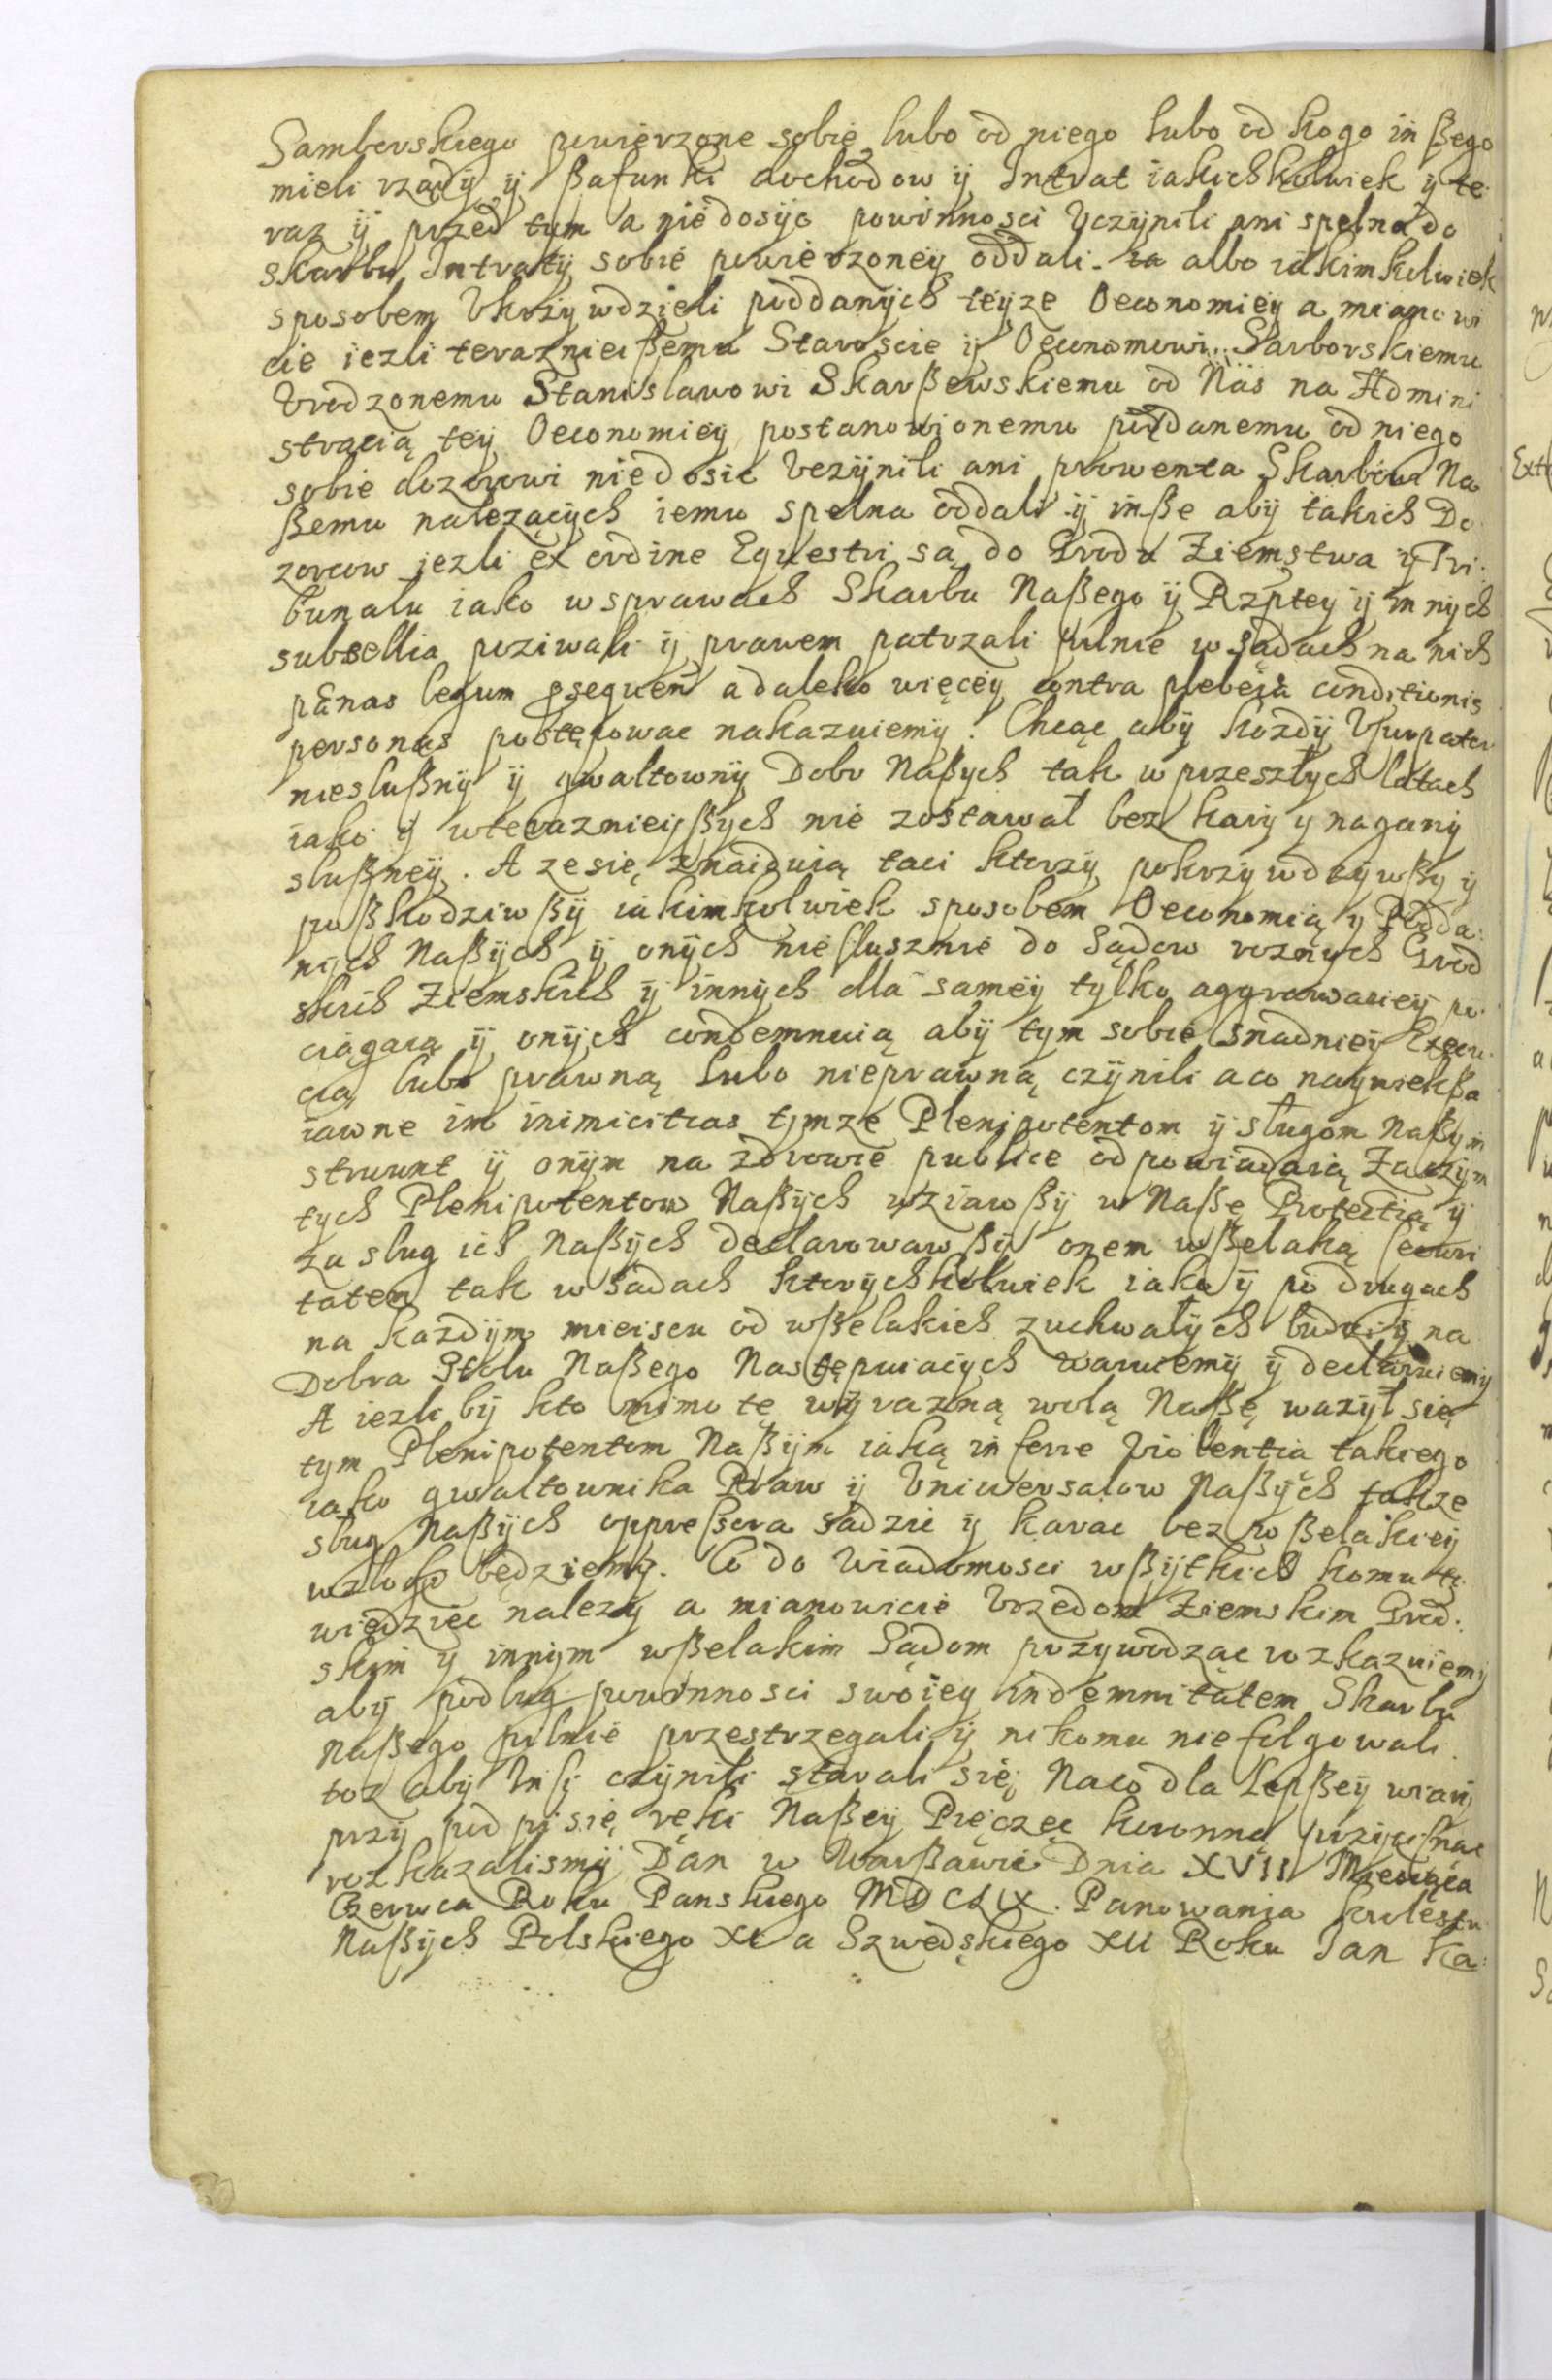 Samborskiego powierzone sobie lubo od niego lubo od kogo inßego
mieli rządÿ ÿ ßafunki dochodow ÿ Intrat iakichkolwiek ÿ te
raz ÿ przed tym a niedosÿc powinnosci Vczÿnili ani spelna do
skarbu Intratÿ sobie powierzoneÿ oddali albo iakimkolwiek
sposobem Vkrzÿwdzieli poddanÿch teÿze Oeconomieÿ a mianowi
cie iezli teraznieißemu Staroscie ÿ Oeconomowi Samborskiemu
Vrodzonemu Stanislawowi Skarßewskiemu od Nas na Admini
stracią teÿ Oeconomieÿ postanowionemu poddanemu od niego
sobie dozorowi niedosic Vczÿnili ani prowenta Skarbowi Na
ßemu nalezącÿch iemu spelna oddali ÿ inße abÿ takich Do
zorcow iezli ex ordine Equestri są do Grodu Ziemstwa ÿ Tri
bunalu iako w sprawach Skarbu Naßego ÿ Rzptey ÿ innÿch
subsellia poziwali ÿ prawem patrzali pilnie w sądach na nich
pænas legum a daleko więceÿ contra plebeia conditionis
personas postępowac nakazuiemÿ. Chcąc abÿ kozdÿ Vsurpator
nieslußnÿ ÿ gwaltownÿ Dobr Naßych tak w przeszłÿch latach
iako ÿ w teraznieÿßÿch nie zostawał bez karÿ y naganÿ
slußneÿ. A ze się znaiduią taci ktorzÿ pokrzÿwdzÿwßÿ ÿ
poßkodziwßÿ iakimkolwiek sposobem Oeconomią ÿ Podda
nÿch Naßÿch ÿ onÿch niesłusznie do Sądow roznÿch Grod
skich Ziemskich ÿ innÿch dla sameÿ tÿlko aggrawacieÿ po
ciągaią ÿ onÿch condemnuią abÿ tym sobie snadnieÿ Execu
cią lubo prawną lubo nieprawną czÿnili a co naÿwiekßa
iawne im inimicitias tymze Plenipotentom ÿ sługom Naßym
struunt ÿ onÿm na zdrowie publice odpowiadaią Zaczÿm
tych Plenipotentow Naßÿch wziawßÿ w Naßę Protectią ÿ
za slug ich Naßÿch declarowawßÿ onem wßelaką secwri
tatem tak w sądach ktorÿchkolwiek iako ÿ po drugach
na kazdÿm mieiscu od wßelakich zuchwałÿch ludzi ÿ na
Dobra Stolu Naßego Następuiacÿch waruiemÿ ÿ declaruiemÿ
A iezli bÿ kto mimo tę wÿrazną wolą Naßę wazÿł się
tym Plenipotentom Naßÿm iaką inferre Violentia takiego
iako gwaltownika Praw ÿ Vniwersalow Naßÿch takze
slug Naßÿch oppreßora sadzic ÿ karac bez wßelakieÿ
będziemÿ. Co do Wiadomosci wßÿtkich komu to
wiedziec nalezÿ a mianowicie Vrzedom Ziemskim Grod
skim ÿ innÿm wßelakim Sądom przÿwodząc rozkazuiemÿ
abÿ podlug powinnosci swoieÿ indemnitatem Skarbu
Naßego pilnie przestrzegali ÿ nikomu niefolgowali
toz abÿ Insi czÿnili starali się Naco dla Lepßeÿ wiarÿ
przÿ podpisie ręki Naßeÿ Pięczęc koronną przÿcisnac
rozkazalismÿ Dan w Warßawie Dnia XVII Miesiąca
Czerwca Roku Panskiego MDCLIX. Panowania krolestw
Naßÿch Polskiego XI a Szwedskiego XII Roku Jan Ka